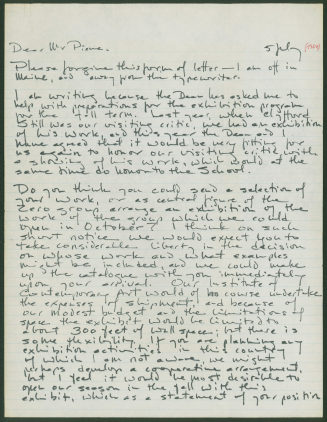 Dear Mr Piene. 5 July (1964)
Please forgive this form of letter — I am off in
Maine, and away from the typewriter.
I am writing because the Dean has asked me to
help with preparations for the exhibition program
for the fall term. Last year, when Clyfford
Still was our visiting critic, we had an exhibition
of his work, and this year the Dean and I
have agreed that it would be very fitting for
us again to honor our visiting critic with
a showing of his work, which would at the
same time do honor to the School.
Do you think you could send a selection of
your work, or as central figure of the
Zero group arrange an exhibition of the
work of the group which we could
open in October? I think on such
short notice we would expect you to
take considerable liberty in the decision
on whose work and what examples
might be included, and we could make
up the catalogue with you immediately
upon your arrival. Our Institute of
Contemporary Art would of course undertake
the expenses of shipment, and because of
our modest budget and the limitations of
space the exhibit would be limited to
about 300 feet of wall space, but there is
some flexibility. If you are planning any
exhibition activities in this country
of which I am not aware, we might
perhaps develop a cooperative arrangement,
but I feel it would be most desirable to
open our season in the fall with this
exhibit, which as a statement of your position